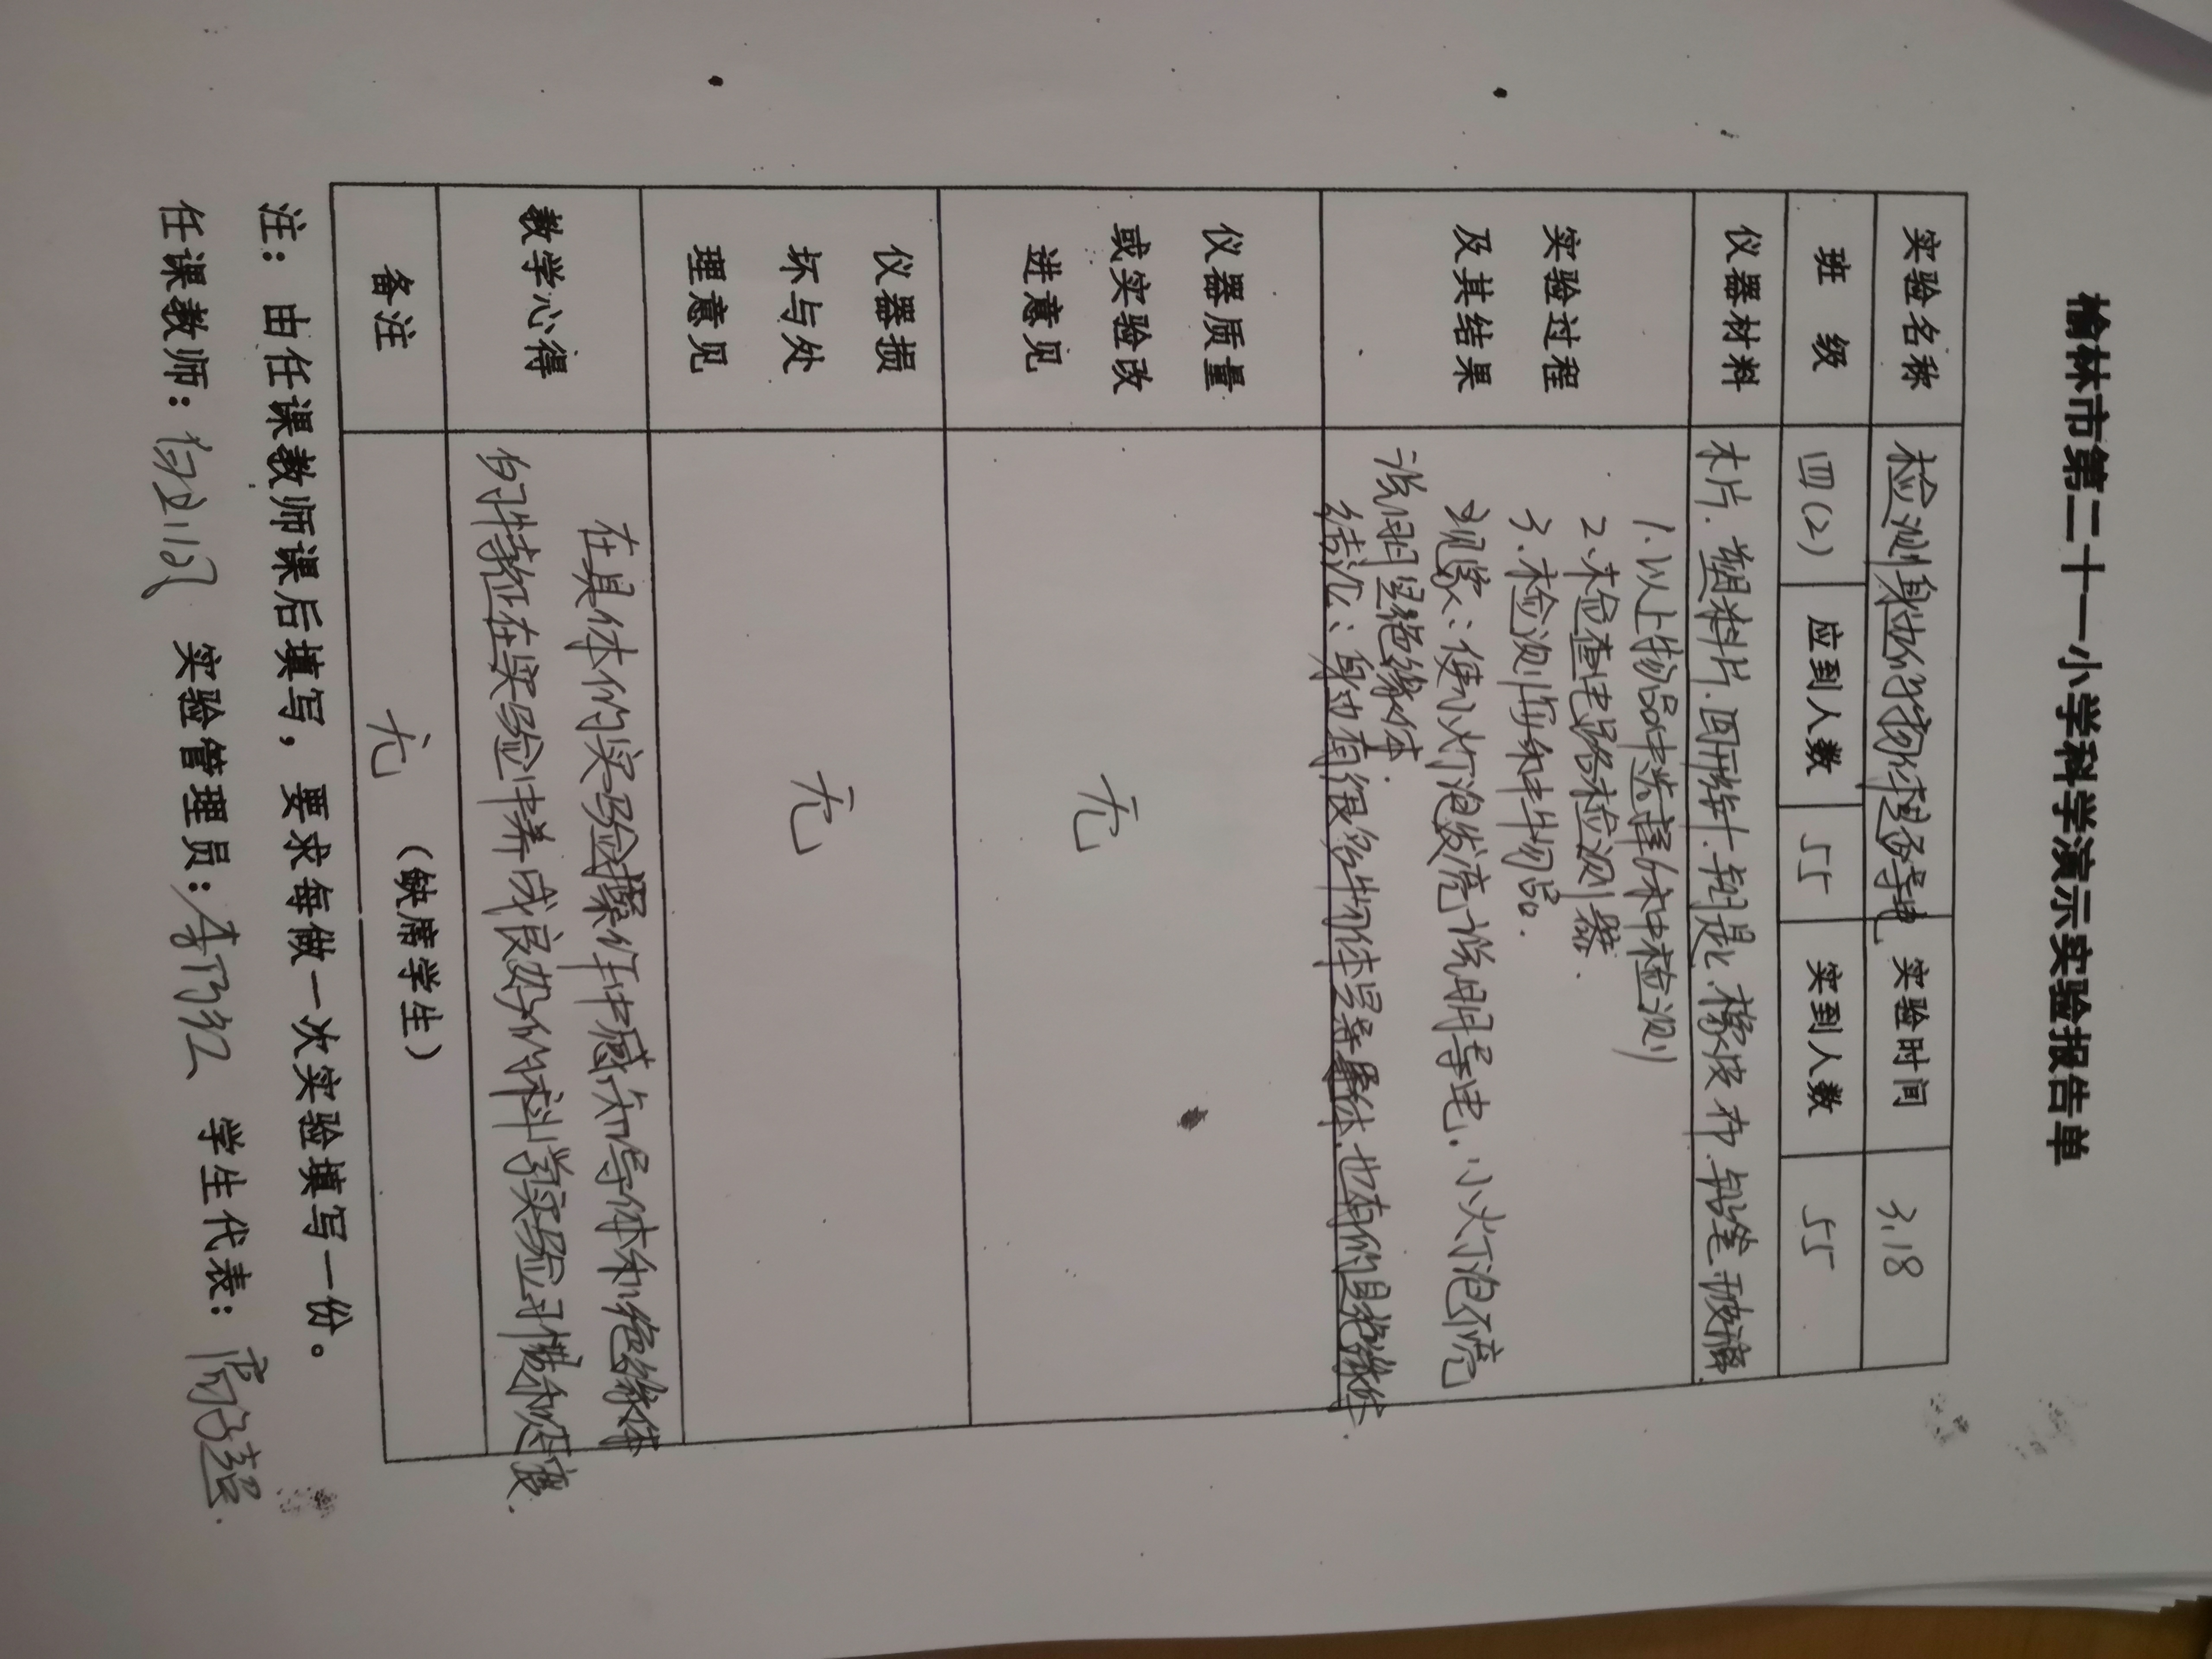 榆林市第二十一小学科学演示实验报告单
实验名称 检测身边的物体是否导电 实验时间 3.18
班 级 四(2) 应到人数 55 实到人数 55
仪器材料 木片.塑料片.回形针.钥匙.橡皮.布.铅笔.玻璃
实验过程
及其结果
1.以上物品中选择体中检测
2、检查电路检测器.
3、检测 物品.
现象:使小灯泡发亮说明导电.小灯泡不亮
说明是绝缘体.
结论:身边有很多物体是导体.也有的是绝缘体.
仪器质量
或实验改
进意见
无
仪器损
坏与处
理意见
无
教学心得
在具体的实验操作中感知导体和绝缘体
的特征在实验中养成良好的科学实验习惯和态度.
备注 无 (缺席学生)
注:由任课教师课后填写,要求每做一次实验填写一份。
任课教师: 实验管理员: 学生代表: